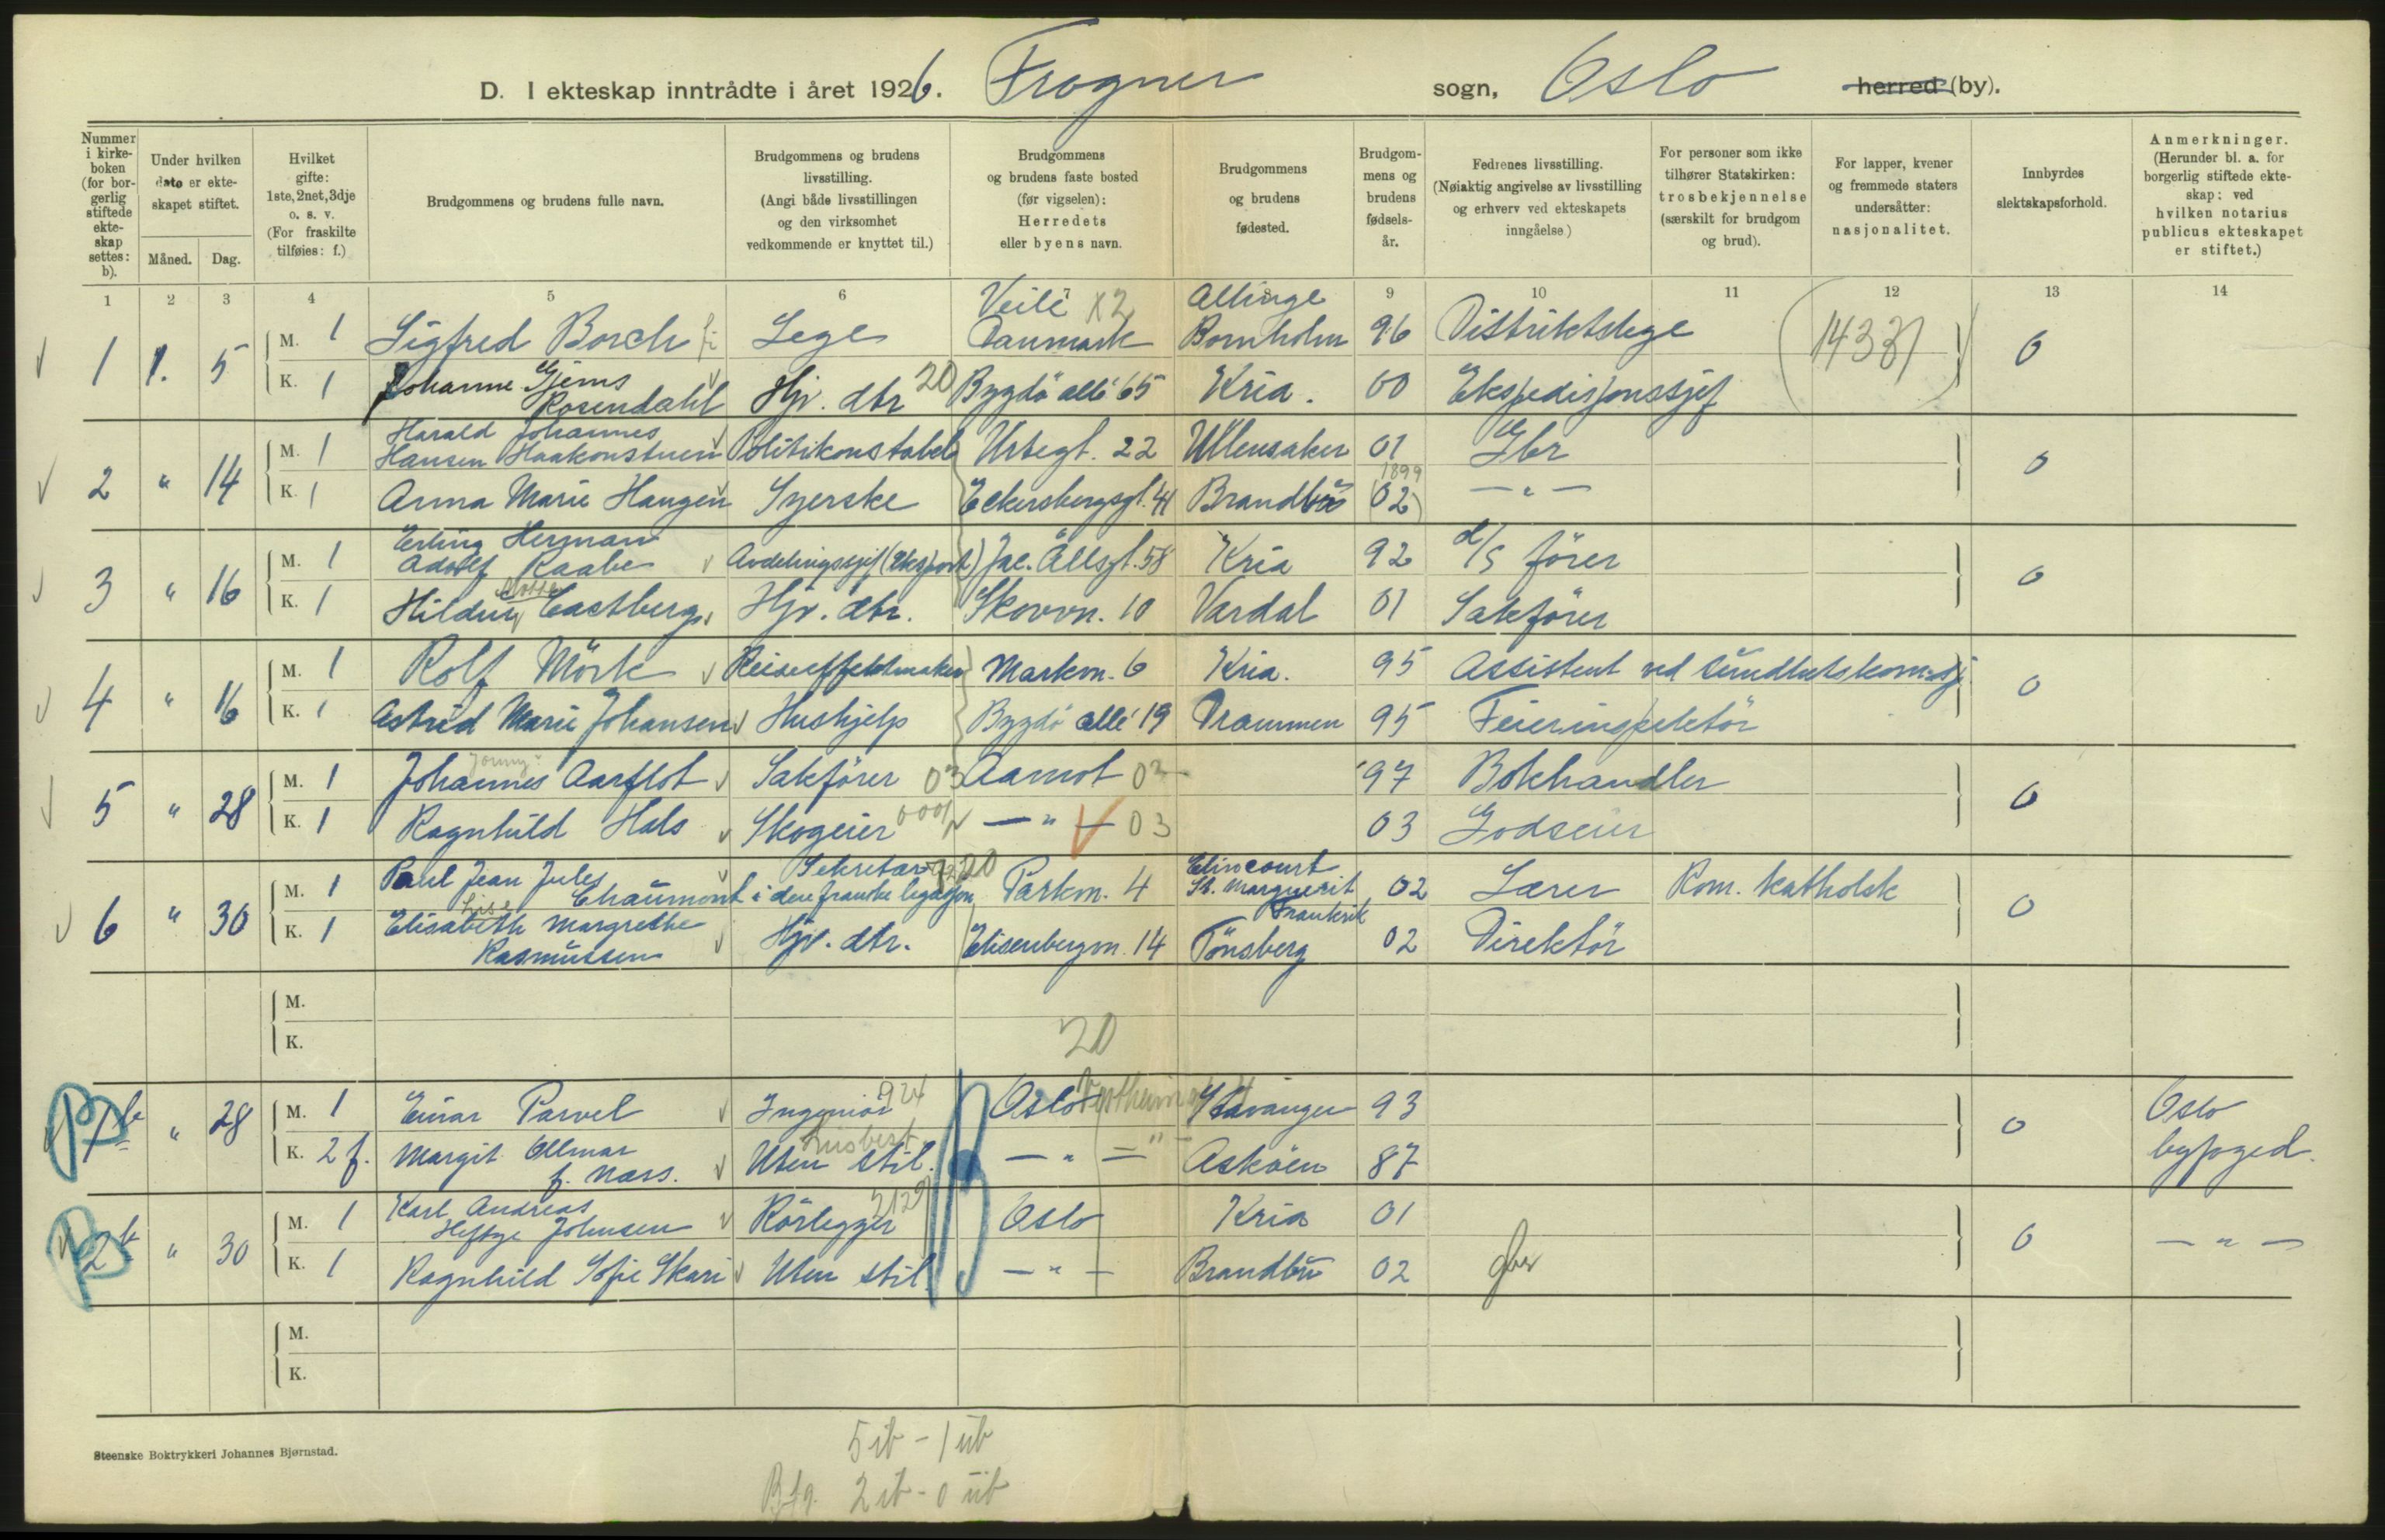 D. I ekteskap inntrådte i året 1926. Frogner sogn, Oslo herred (by).
Nummer i kirkeboken (for borgerlig stiftede ekteskap settes: b).
Under hvilken dato er ekteskapet stiftet.
Måned. Dag.
Hvilket gifte: 1ste, 2net, 3dje o. s. v. (For fraskilte tilføies: f.)
Brudgommens og brudens fulle navn.
Brudgommens og brudens livsstilling. (Angi både livsstillingen og den virksomhet vedkommende er knyttet til.)
Brudgommens og brudens faste bosted (før vigselen): Herredets eller byens navn.
Brudgommens og brudens fødested.
Brudgommens og brudens fødselsår.
Fedrenes livsstilling. (Nøiaktig angivelse av livsstilling og erhverv ved ekteskapets inngåelse.)
For personer som ikke tilhører Statskirken: trosbekjennelse (særskilt for brudgom og brud).
For lapper, kvener og fremmede staters undersåtter: nasjonalitet.
Innbyrdes slektskapsforhold.
Anmerkninger. (Herunder bl. a. for borgerlig stiftede ekteskap: ved hvilken notarius publicus ekteskapet er stiftet.)
1 2 3 4 5 6 7 8 9 10 11 12 13 14
1 1. 5 M. 1 Sigfred Borch Lege Veile x2 Danmark Allinge Bornholm 96 Distriktslege (1433) 0
K. 1 Johanne Gjems Rosendahl Hjv. dtr 20 Bygdö allé 65 Kria. 00 Ekspedisjonssjef
2 " 14 M. 1 Harald Johannes Hansen Haakonstuen Politikonstabel Urtegt. 22 Ullensaker 01 Gbr 0
K. 1 Anna Marie Haugen Syerske Eckersbergsgt. 41 Brandbu 1899 (02) — " —
3 " 16 M. 1 Erling Herman Adolf Raabe Avdelingssjef (eksport) Jac. Allsgt. 58 Kria 92 d/s förer 0
K. 1 Hildur Castberg Hjv. dtr. Skovvn. 10 Vardal 01 Sakförer
4 " 16 M. 1 Rolf Mörk Reiseeffektmaker Markvn. 6 Kria. 95 Assistent ved 0
K. 1 Astrid Marie Johansen Hushjelp Bygdö allé 19 Drammen 95 Feierinspektör
5 " 28 M. 1 Johannes Aarflot Sakförer 03 Aamot 03 97 Bokhandler 0
K. 1 Ragnhild Hals Skogeier — " — 03 03 Godseier
6 " 30 M. 1 Paul Jean Jules Chaumont Sekretær i den franske legasjon 20 Parkvn. 4 Elincourt St. Marguerit Frankrik 02 Lærer Rom. katholsk 0
K. 1 Elisabeth Lise Margrethe Rasmussen Hjv. dtr. Elisenbergvn. 14 Tönsberg 02 Direktör
M.
K.
20
1b " 28 M. 1 Einar Parvel Ingeniör 924 Oslo Stavanger 93 0 Oslo byfoged.
K. 2 f. Margit Ellmar f. Næss. Uten stil. husbest — " — — " — Asköen 87
2b " 30 M. 1 Karl Andreas Heftye Johnsen Rörlegger 2129 Oslo Kria 01 0 — " —
K. 1 Ragnhild Sofie Skari Uten stil. — " — Brandbu 02 gbr
M.
K.
Steenske Boktrykkeri Johannes Bjørnstad.
5 ib - 1 ub
Bfg. 2 ib - 0 ub